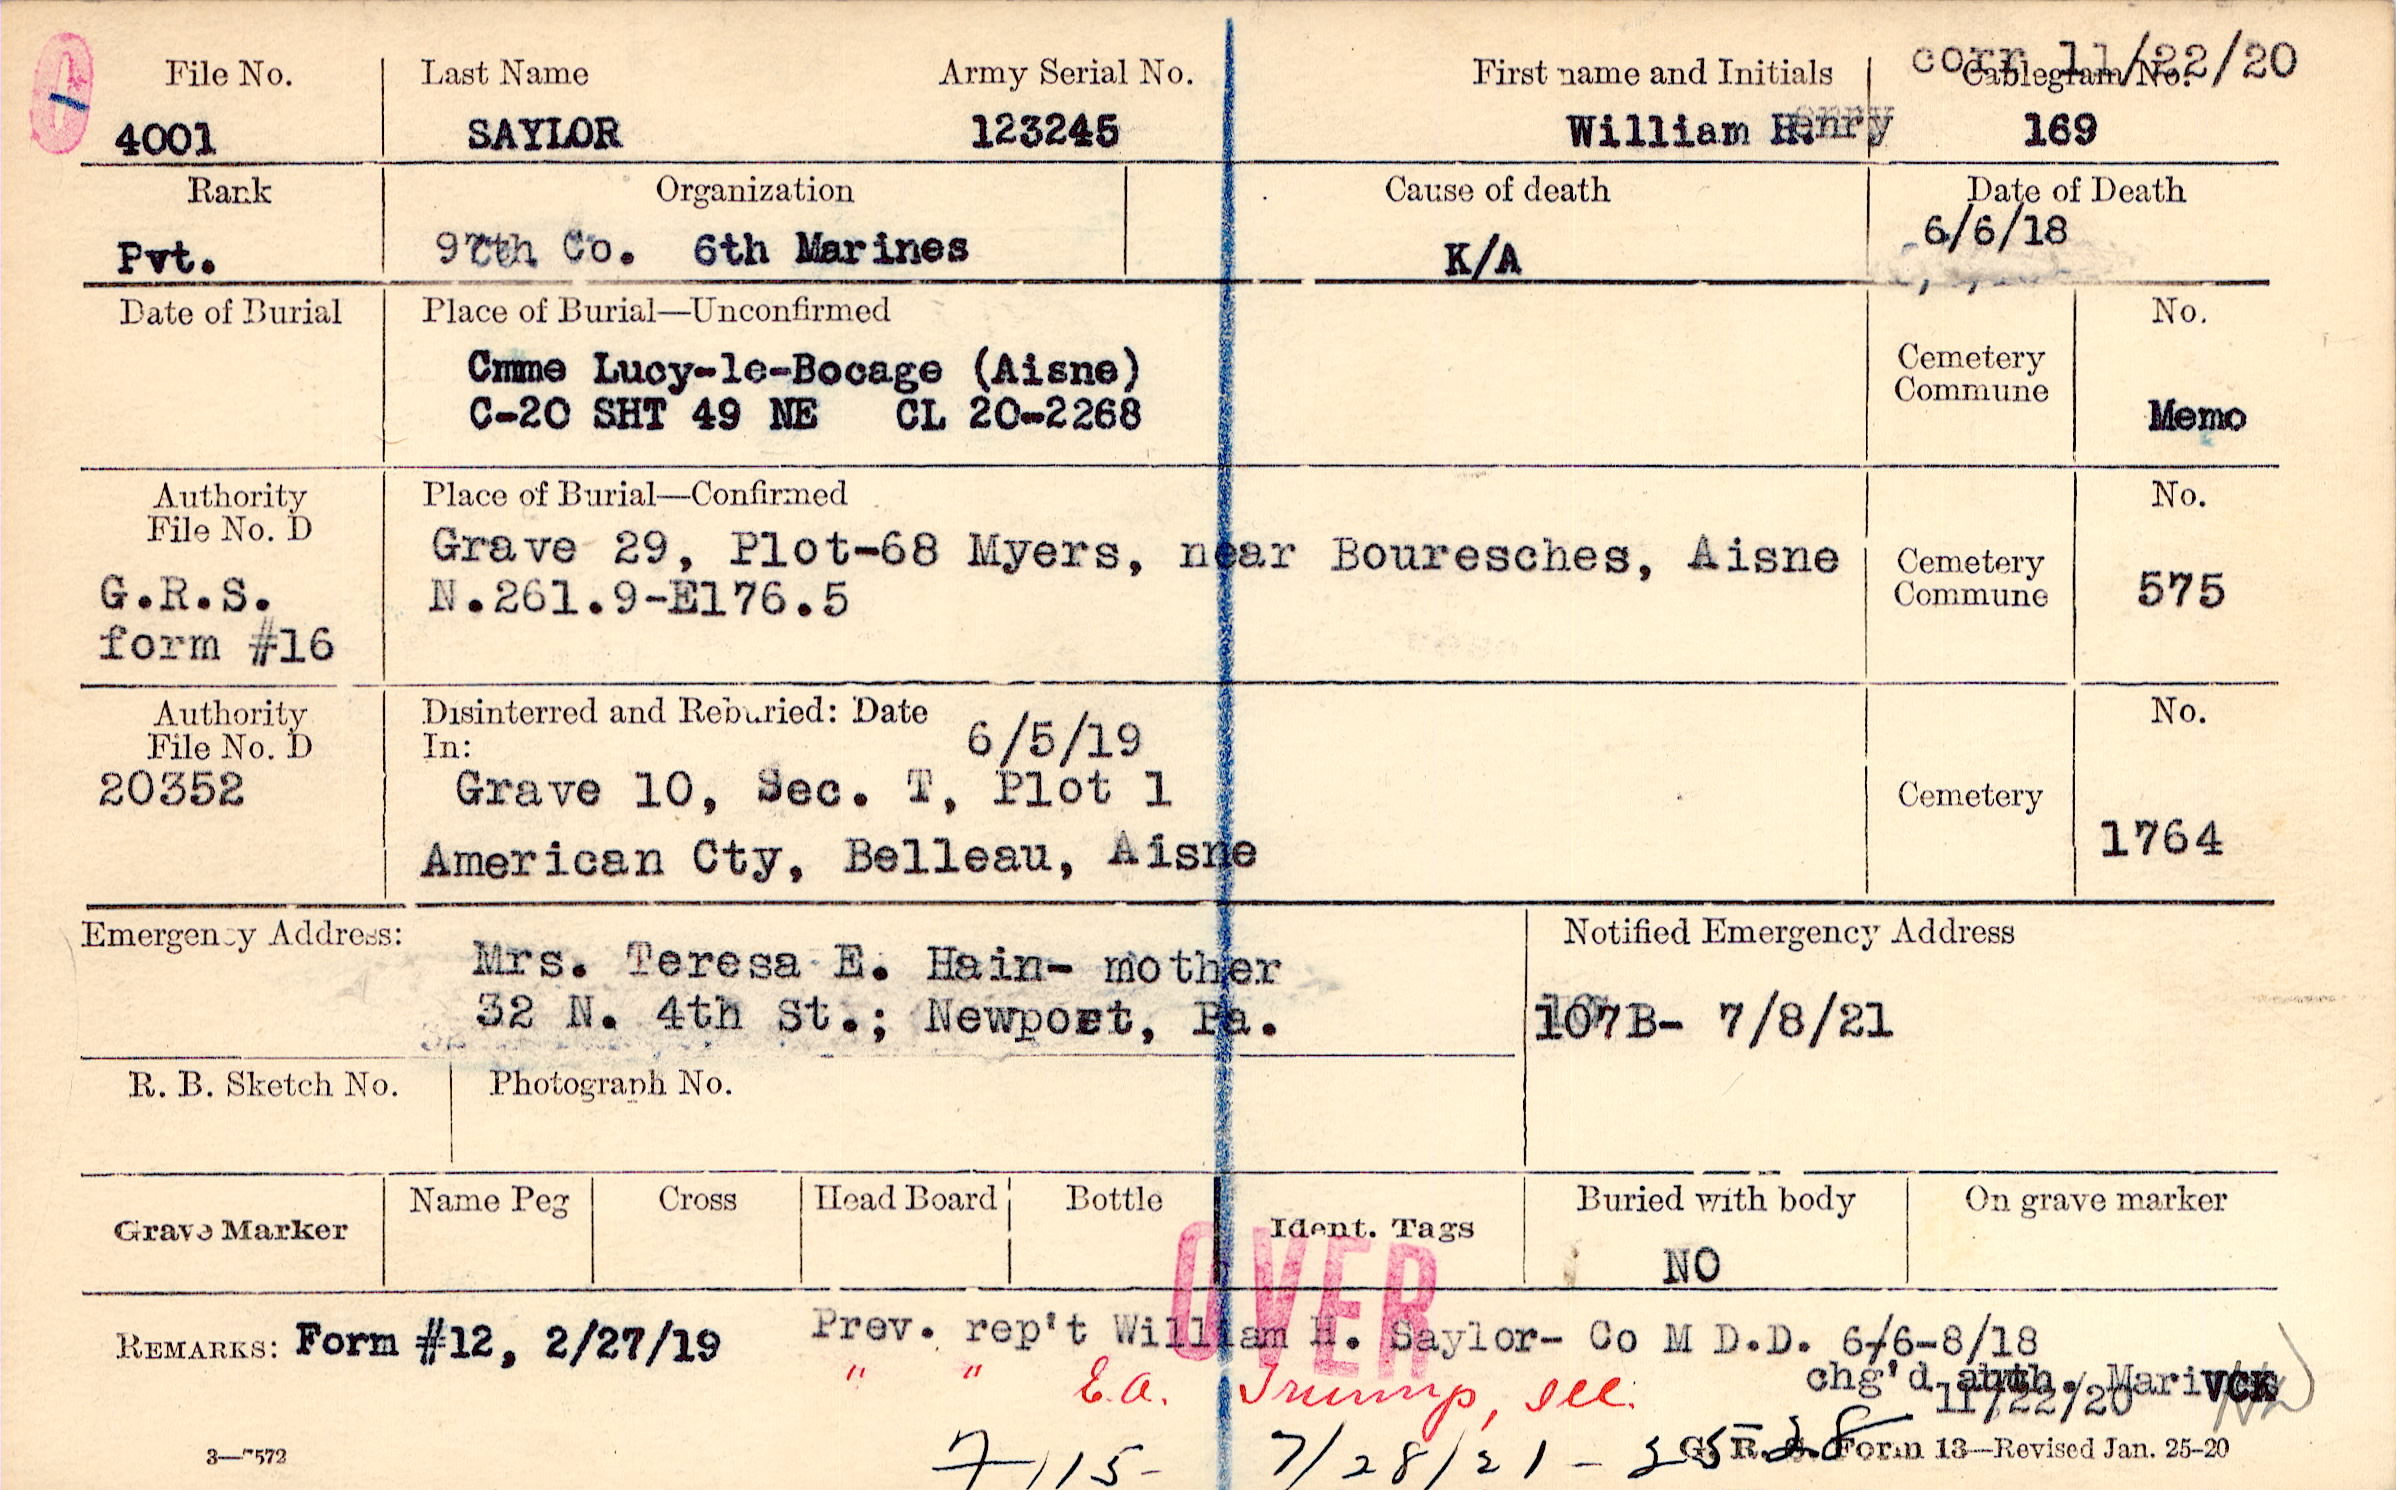 File No.
4001
Last Name
SAYLOR
Army Serial No.
123245
First name and Initials
William Henry
corr 11/22/20
Cablegram No.
169
Rank
Pvt.
Organization
97th Co. 6th Marines
Cause of death
K/A
Date of Death
6/6/18
Date of Burial
Place of Burial—Unconfirmed
Cmme Lucy-le-Bocage (Aisne)
C-20 SHT 49 NE CL 20-2268
Cemetery
Commune
No.
Memo
Authority
File No. D
G.R.S.
form #16
Place of Burial—Confirmed
Grave 29, Plot-68 Myers, near Bouresches, Aisne
N.261.9-E176.5
Cemetery
Commune
No.
575
Authority
File No. D
20352
Disinterred and Reburied: Date
In: 6/5/19
Grave 10, Sec. T, Plot 1
American Cty, Belleau, Aisne
Cemetery
No.
1764
Emergency Address:
Mrs. Teresa E. Hain- mother
32 N. 4th St.; Newport, Pa.
Notified Emergency Address
107B- 7/8/21
R. B. Sketch No.
Photograph No.
Grave Marker
Name Peg
Cross
Head Board
Bottle
Ident. Tags
Buried with body
NO
On grave marker
OVER
REMARKS: Form #12, 2/27/19 Prev. rep't William H. Saylor- Co M D.D. 6/6-8/18
" " E.A. Trump, Ill.
chg'd auth. Mari
11/22/20
VCK
7/28/21
3—7572
G. R. S. Form 13—Revised Jan. 25-20